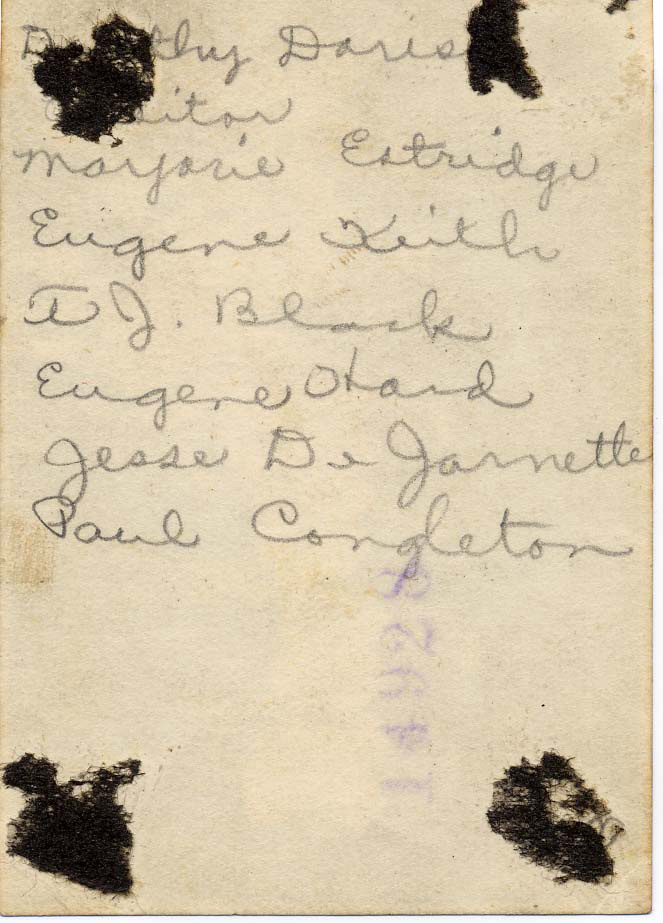 Dorothy Davis
Marjorie Estridge
Eugene Keith
T J. Black
Eugene Hard
Jesse De Jarnette
Paul Congleton
14928